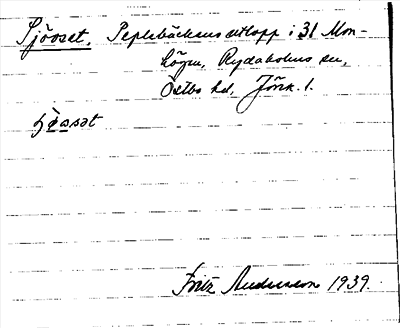 Sjöoset. Peplebäckens utlopp i 31 Mon-
högen, Rydaholms sn,
Östbo hd, Jönk. l.
Fritz Andersson 1939.